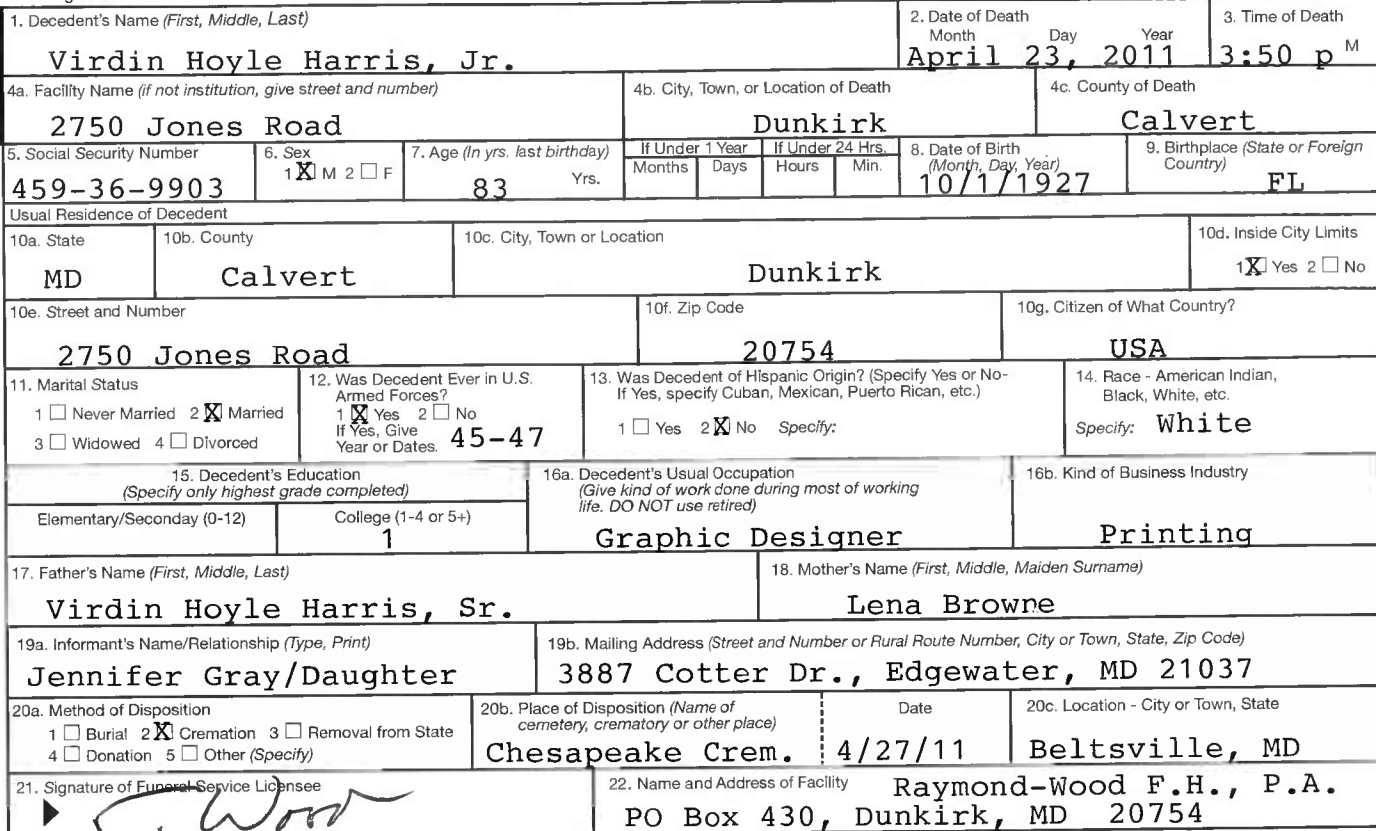 1. Decedent's Name (First, Middle, Last)
Virdin Hoyle Harris, Jr.
2. Date of Death
Month Day Year
April 23, 2011
3. Time of Death
3:50 p M
4a. Facility Name (if not institution, give street and number)
2750 Jones Road
4b. City, Town, or Location of Death
Dunkirk
4c. County of Death
Calvert
5. Social Security Number
459-36-9903
6. Sex
1 X M 2 ☐ F
7. Age (In yrs. last birthday)
83 Yrs.
If Under 1 Year
Months Days
If Under 24 Hrs.
Hours Min.
8. Date of Birth
(Month, Day, Year)
10/1/1927
9. Birthplace (State or Foreign
Country)
FL
Usual Residence of Decedent
10a. State
MD
10b. County
Calvert
10c. City, Town or Location
Dunkirk
10d. Inside City Limits
1 X Yes 2 ☐ No
10e. Street and Number
2750 Jones Road
10f. Zip Code
20754
10g. Citizen of What Country?
USA
11. Marital Status
1 ☐ Never Married 2 X Married
3 ☐ Widowed 4 ☐ Divorced
12. Was Decedent Ever in U.S.
Armed Forces?
1 X Yes 2 ☐ No
If Yes, Give
Year or Dates. 45-47
13. Was Decedent of Hispanic Origin? (Specify Yes or No-
If Yes, specify Cuban, Mexican, Puerto Rican, etc.)
1 ☐ Yes 2 X No Specify:
14. Race - American Indian,
Black, White, etc.
Specify: White
15. Decedent's Education
(Specify only highest grade completed)
Elementary/Seconday (0-12)
College (1-4 or 5+)
1
16a. Decedent's Usual Occupation
(Give kind of work done during most of working
life. DO NOT use retired)
Graphic Designer
16b. Kind of Business Industry
Printing
17. Father's Name (First, Middle, Last)
Virdin Hoyle Harris, Sr.
18. Mother's Name (First, Middle, Maiden Surname)
Lena Browne
19a. Informant's Name/Relationship (Type, Print)
Jennifer Gray/Daughter
19b. Mailing Address (Street and Number or Rural Route Number, City or Town, State, Zip Code)
3887 Cotter Dr., Edgewater, MD 21037
20a. Method of Disposition
1 ☐ Burial 2 X Cremation 3 ☐ Removal from State
4 ☐ Donation 5 ☐ Other (Specify)
20b. Place of Disposition (Name of
cemetery, crematory or other place)
Chesapeake Crem.
Date
4/27/11
20c. Location - City or Town, State
Beltsville, MD
21. Signature of Funeral Service Licensee
Wood
22. Name and Address of Facility Raymond-Wood F.H., P.A.
PO Box 430, Dunkirk, MD 20754